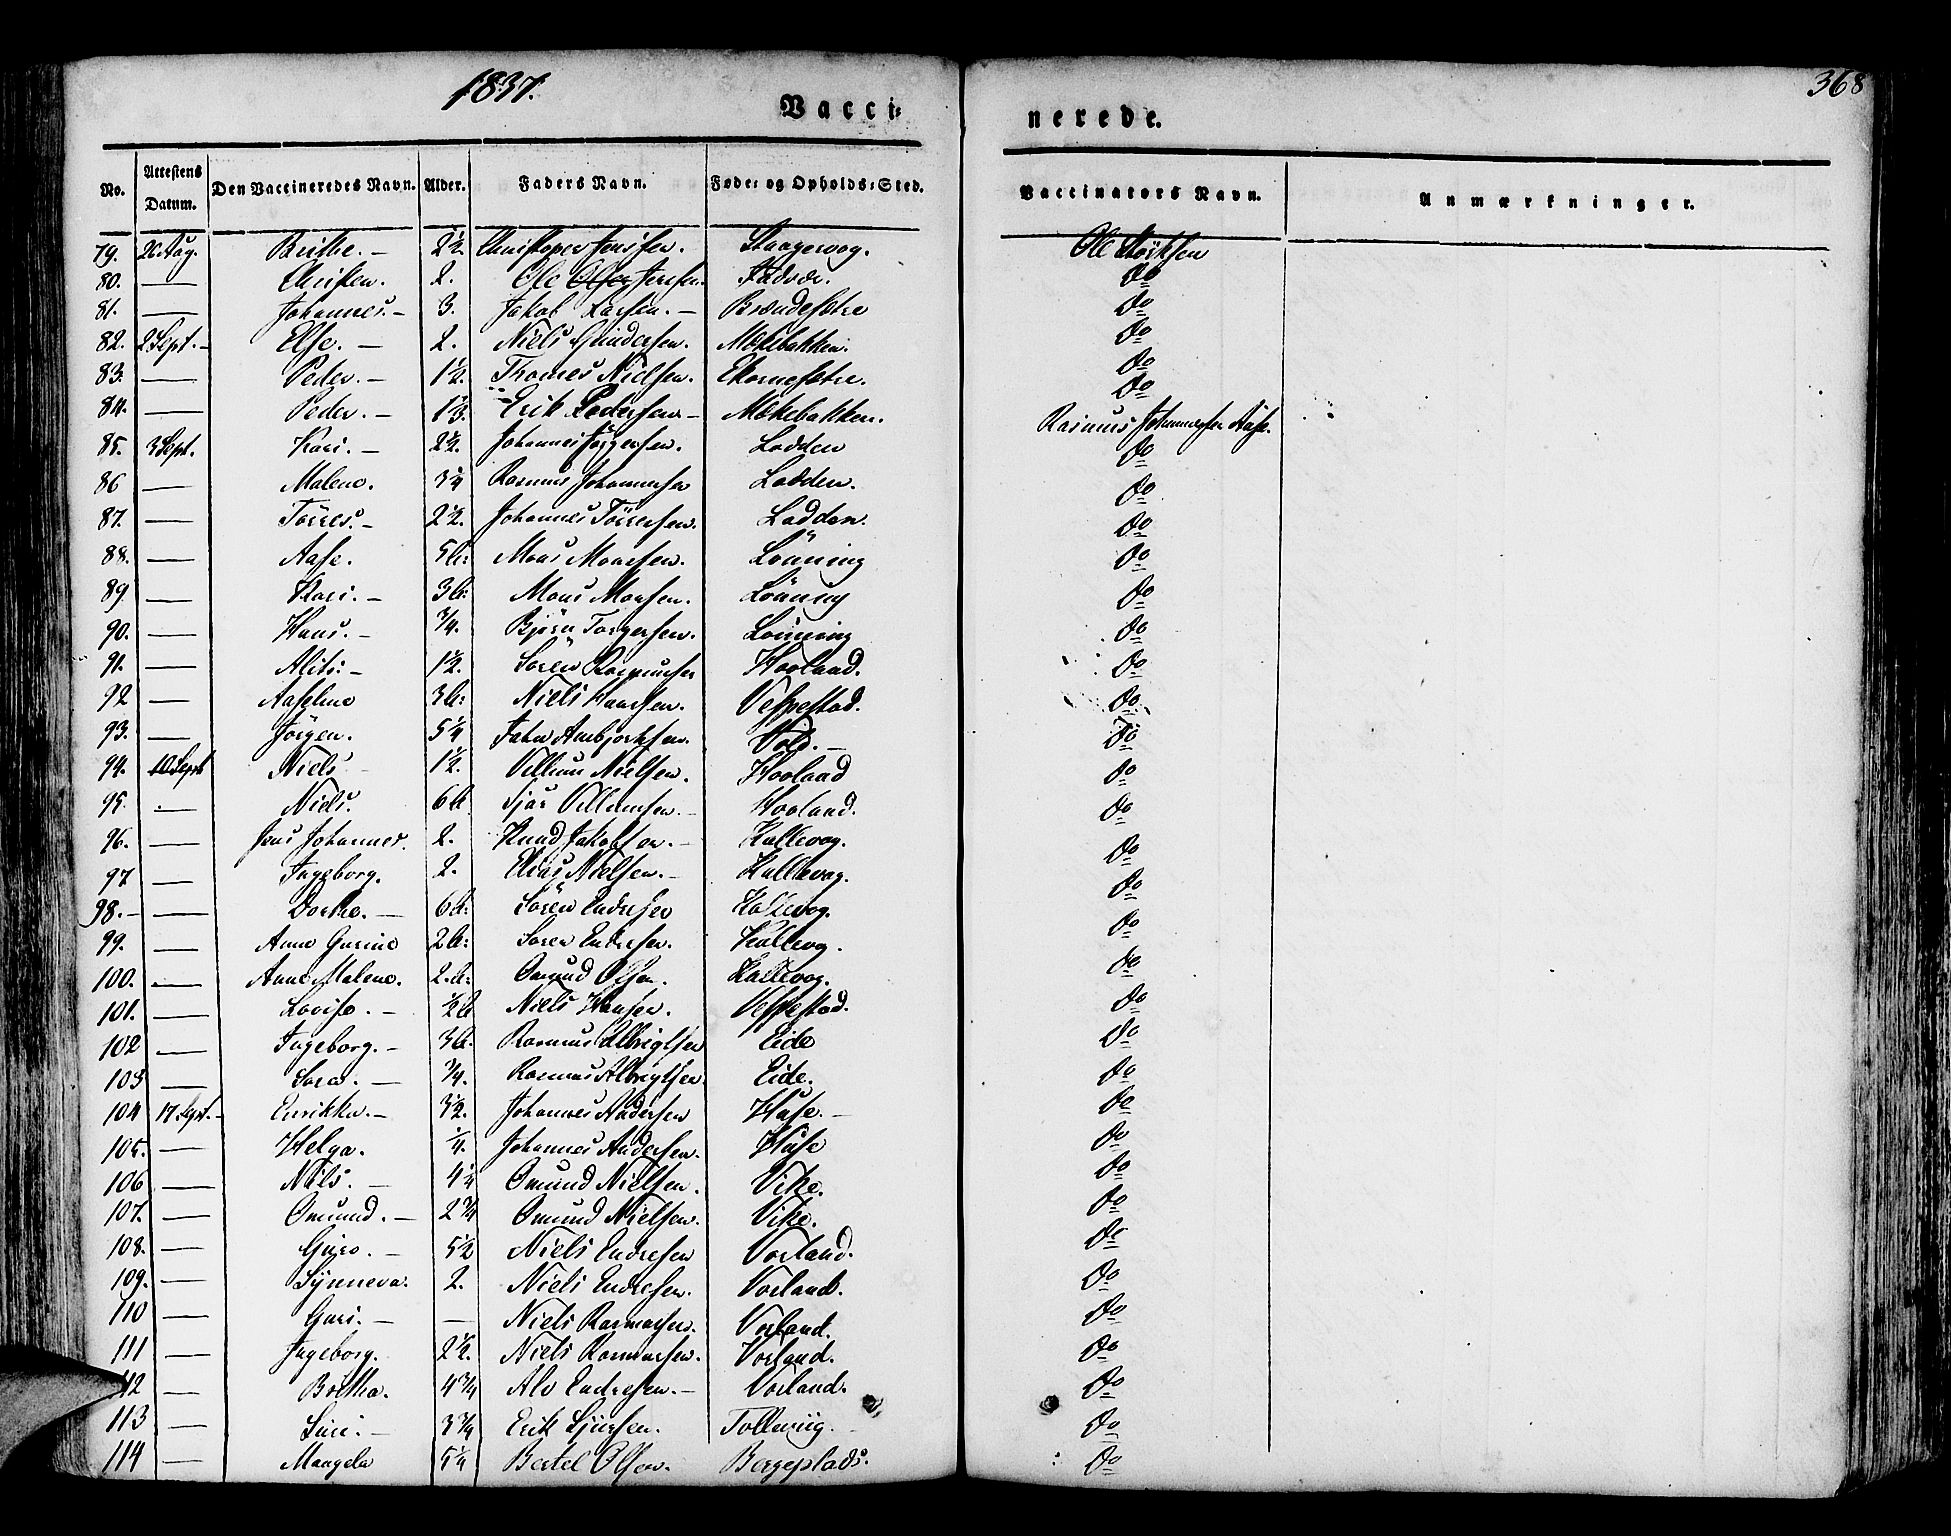 1837.
368
Vacci-
nerede.
No. Attestens Datum. Den Vaccineredes Navn. Alder. Faders Navn. Føde- og Opholds-Sted. Vaccinators Navn. Anmærkninger.
79. 26 Aug. Brithe. — 2½. Christopher Jensen. Staagevog. Ole
80. — Christen. 2. Ole Jensen. Do
81. — Johannes. — 3. Jakob Larsen. — Brændesetre Do
82. 2 Sept. — Else. — 2. Niels Gundersen. Møkebakken. Do
83. — Peder. — 1½. Thomas Nielsen. Ekornesetre. Do
84. — Peder. — 1⅓. Erik Pedersen — Møkebakken. Do
85. 3 Sept. Kari. — 2½. Johannes Jörgensen. Ladden Rasmus Johannessen Aase.
86 — Malene. 3¼ Rasmus Johannessen Ladden. Do
87. — Törres. — 2½. Johannes Törresen. Ladden. Do
88. — Aase. 5 M: Mons Monssen. Lönning Do
89 — Kari. — 3 M: Mons Monsen. Lönning Do
90. — Hans. — ¾. Björn Torgersen. Lönning Do
91. — Alits: — 1½. Sören Rasmussen Hooland. Do
92 — Aaseline 3 M: Niels Hanssen. Vespestad. Do
93. — Jörgen. 5¼ John Ambjörksen. Vold. — Do
94. 10 Sept Niels 1½. Villum Nielsen. Hooland Do
95. — Niels. 6 M Sjur Villumsen. — Hooland. Do
96. — Jens Johannes. 2. Knud Jakobsen. — Kallevog. Do
97 — Ingeborg. 2. Elias Nielsen. — Kallevog. Do
98. — — Dorthe. — 6 M: Sören Endresen Kallevog. Do
99. — Anne Gurine 2 M: Sören Endresen. Kallevog. Do
100. — Anne Malene. 2 M: Omund Olsen. Kallevog. Do
101. — Lovise. — ½ M Niels Hansen. Vespestad. Do
102 — Ingeborg. — 3 M. Rasmus Albrigtsen Eide Do
103 — Sara. — ¾. Rasmus Albrigtsen. Eide. Do
104 17 Sept. — Enrikke. — 3½. Johannes Andersen Huse. — Do
105. — Helga. ¼. Johannes Andersen. Huse Do
106 — Niels. — 4¼ Omund Nielsen. Vike. Do
107. — Omund. — 2¾ Omund Nielsen. Vike. Do
108. — Guro. — 5½ Niels Endresen Vorland. Do
109. — Synneva. 2. Niels Endresen. Vorland. Do
110 — Guri. — — Niels Rasmussen. Vorland. Do
111 — Ingeborg. 2½. Niels Rasmussen. Vorland. Do
112 — Böthla. 4¾ Alv Endresen. — Vorland. Do
113 — Siri. — 3¾ Erik Sjursen. Tolleviig. Do
114 — Mangela 5¼ Bertel Olsen. Bergeplads. Do